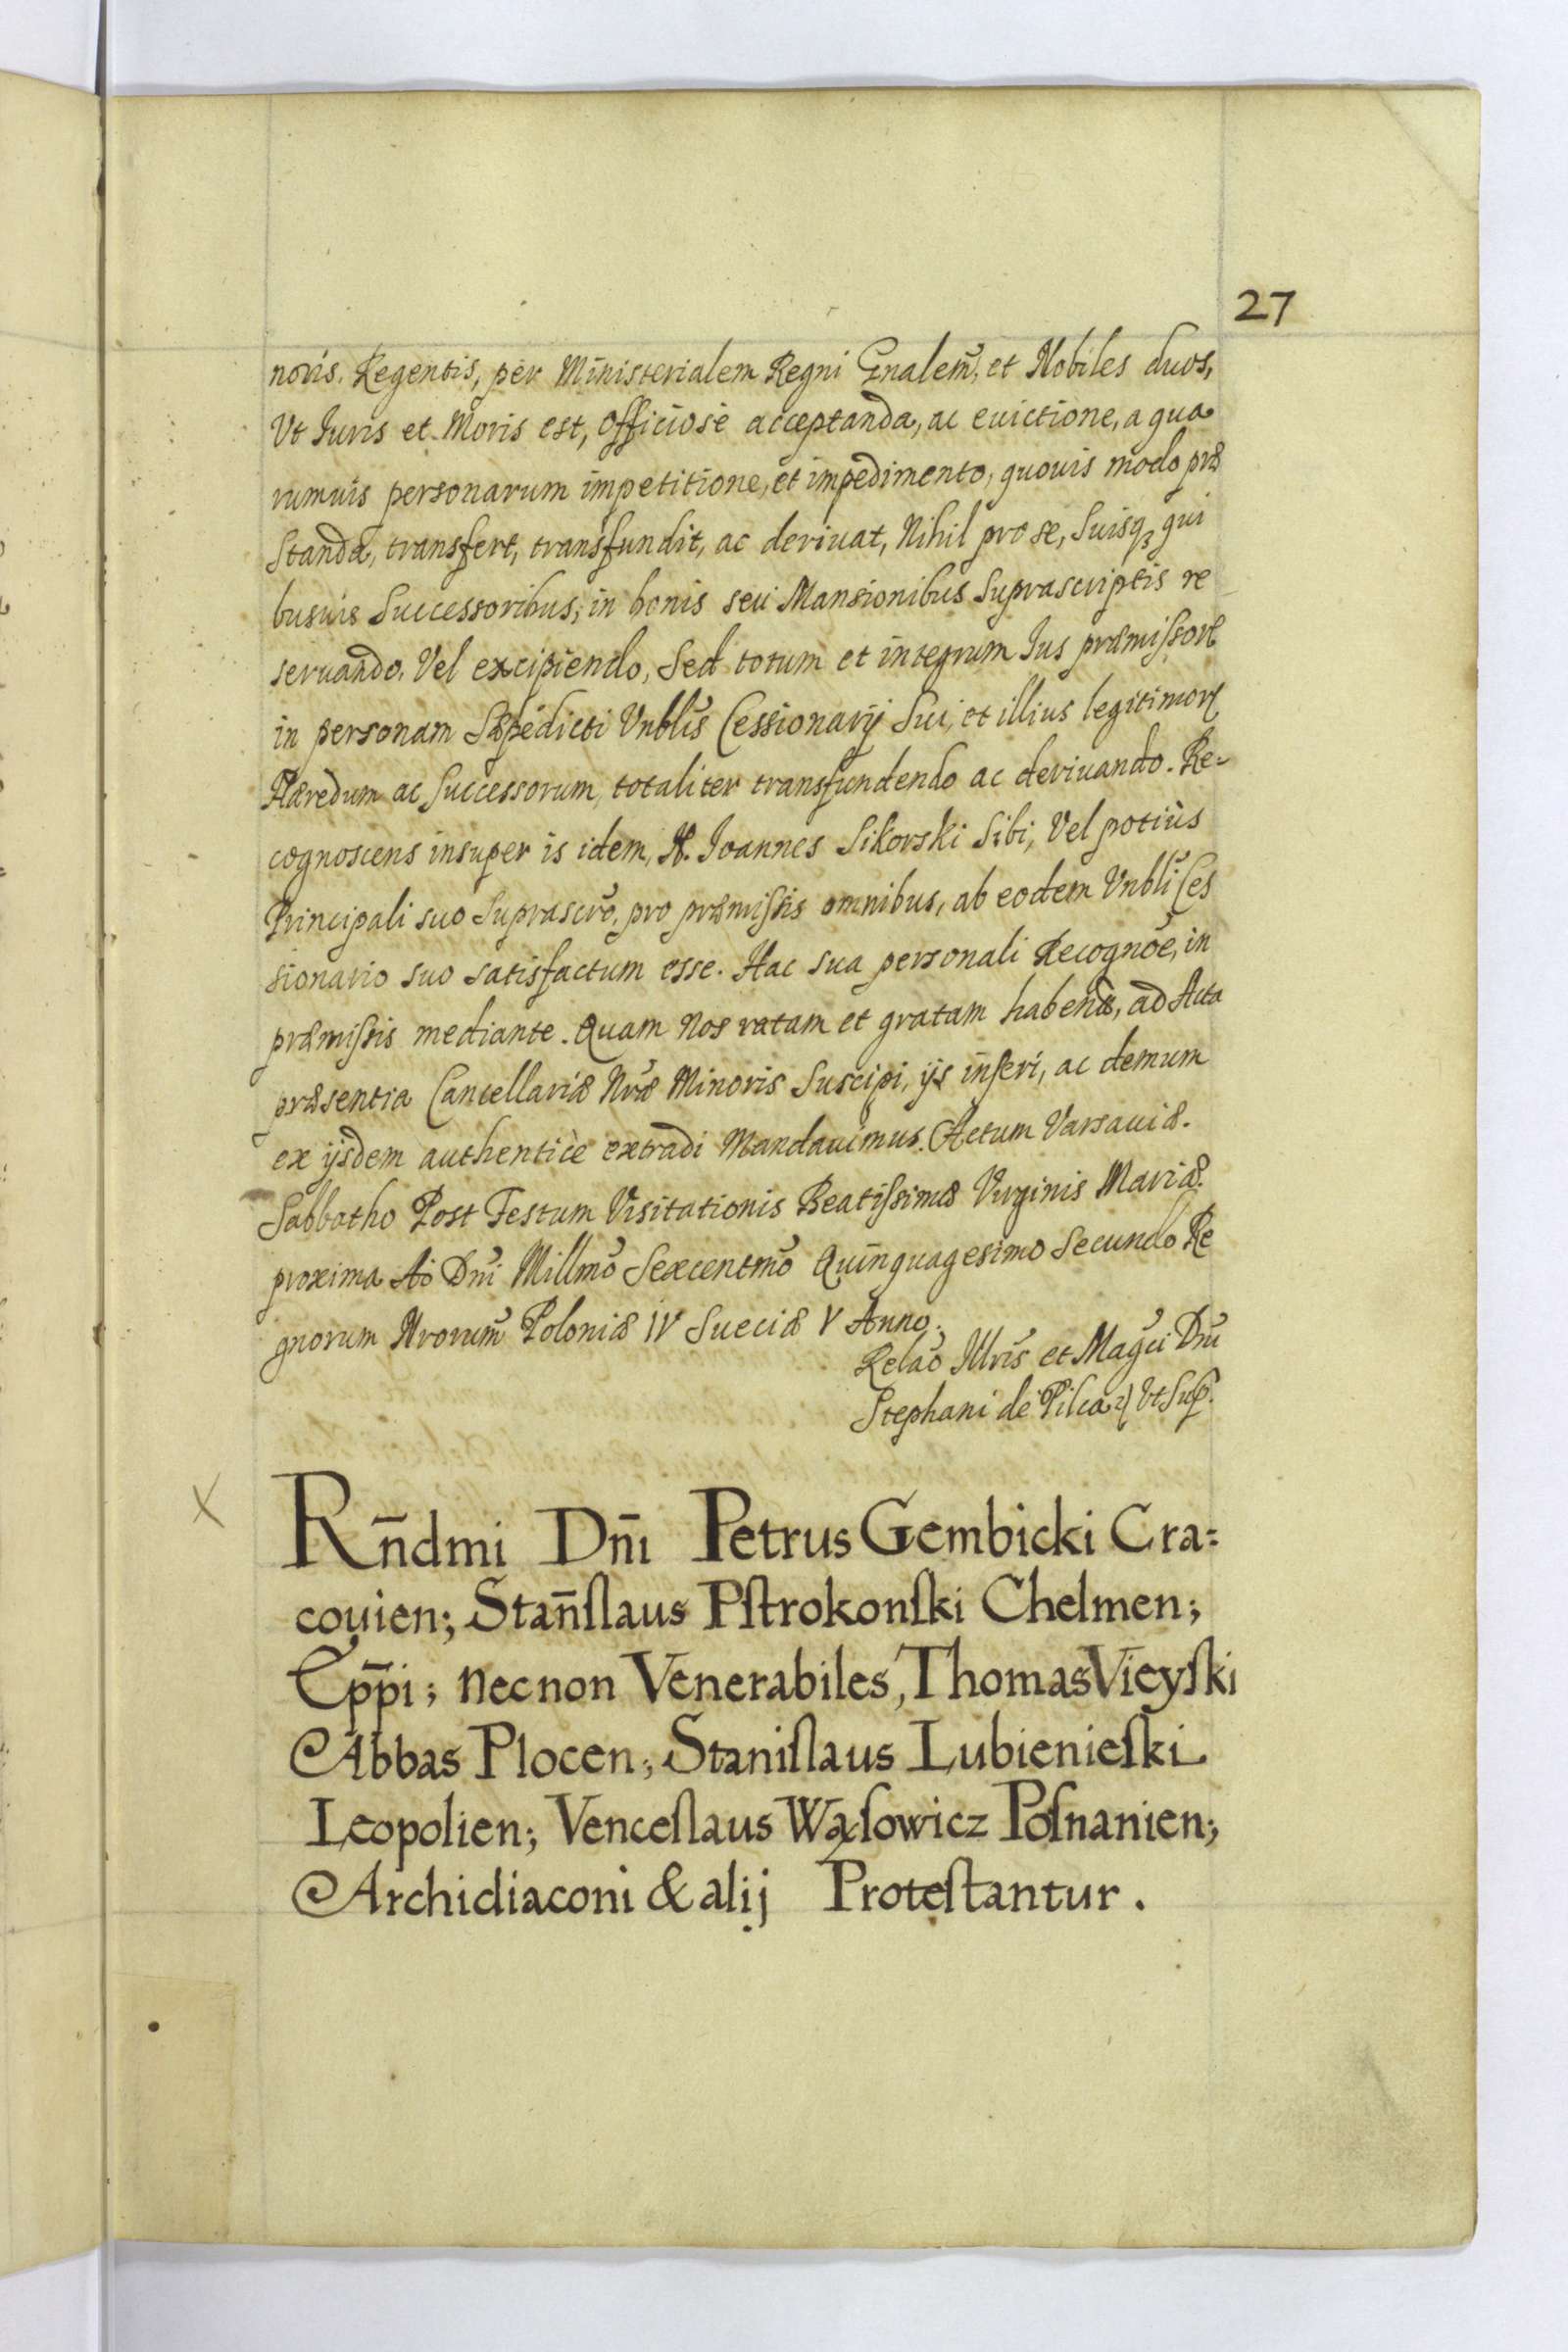 27
noris. Regentis, per Ministerialem Regni Gnalem̃, et Nobiles duos,
Vt Iuris et Moris est, Officiosè acceptanda, ac euictione, a qua
rumuis personarum impetitione, et impedimento, quouis modo præ
standa, transfert, transfundit, ac deriuat, Nihil pro se, Suisq; qui
busuis Successoribus, in bonis seu Mansionibus Suprascriptis re
seruando. Vel excipiendo, Sed totum et integrum Ius præmissorꝝ
in personam Sæpedicti Vnblis̃ Cessionarij Sui, et illius legitimorꝝ
Hæredum ac Successorum, totaliter transfundendo ac deriuando. Re-
cognoscens insuper is idem, N. Ioannes Sikorski Sibi, Vel potiùs
Principali suo Suprascrõ, pro præmissis omnibus, ab eodem Vnblĩ Ces
sionario suo satisfactum esse. Hac sua personali Recognõe, in
præmissis mediante. Quam Nos ratam et gratam habentẽs, ad Acta
præsentia Cancellariæ Nræ̃ Minoris Suscipi, ijs inseri, ac demum
ex ijsdem authenticè extradi Mandauimus. Actum Varsauiæ.
Sabbatho Post Festum Visitationis Beatissimæ Virginis Mariæ.
proxima Aõ Dnĩ Millmõ Sexcentmõ Quinquagesimo Secundo Re
gnorum Nrorum̃ Poloniæ IV Sueciæ V Anno.
Relaõ Illris̃ et Magcĩ Dnĩ
Stephani de Pilca ꝛ Vt Sup.
X
Rn̄dmi Dn̄i Petrus Gembicki Cra=
couien; Stan̄ſlaus Pſtrokonſki Chelmen;
Ep̄pi; necnon Venerabiles, Thomas Vieyſki
Abbas Plocen; Staniſlaus Lubienieſki
Leopolien; Venceſlaus Wąſowicz Poſnanien;
Archidiaconi & alij Proteſtantur.